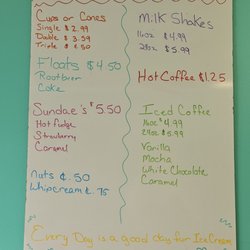 Cups or Cones
Single $ 2.99
Double $ 3.59
Triple $ 4.50
Floats $4.50
Rootbier
Coke
Sundae's $5.50
Hot fudge
Strawberry
Caramel
Nuts ¢.50
Whipcream ¢.75
Milk Shakes
16oz $4.99
24oz $5.99
Hot Coffee $1.25
Iced Coffee
16oz $4.99
24oz $5.99
Vanilla
Mocha
White Chocolate
Caramel
Every Day is a good day for Ice Cream